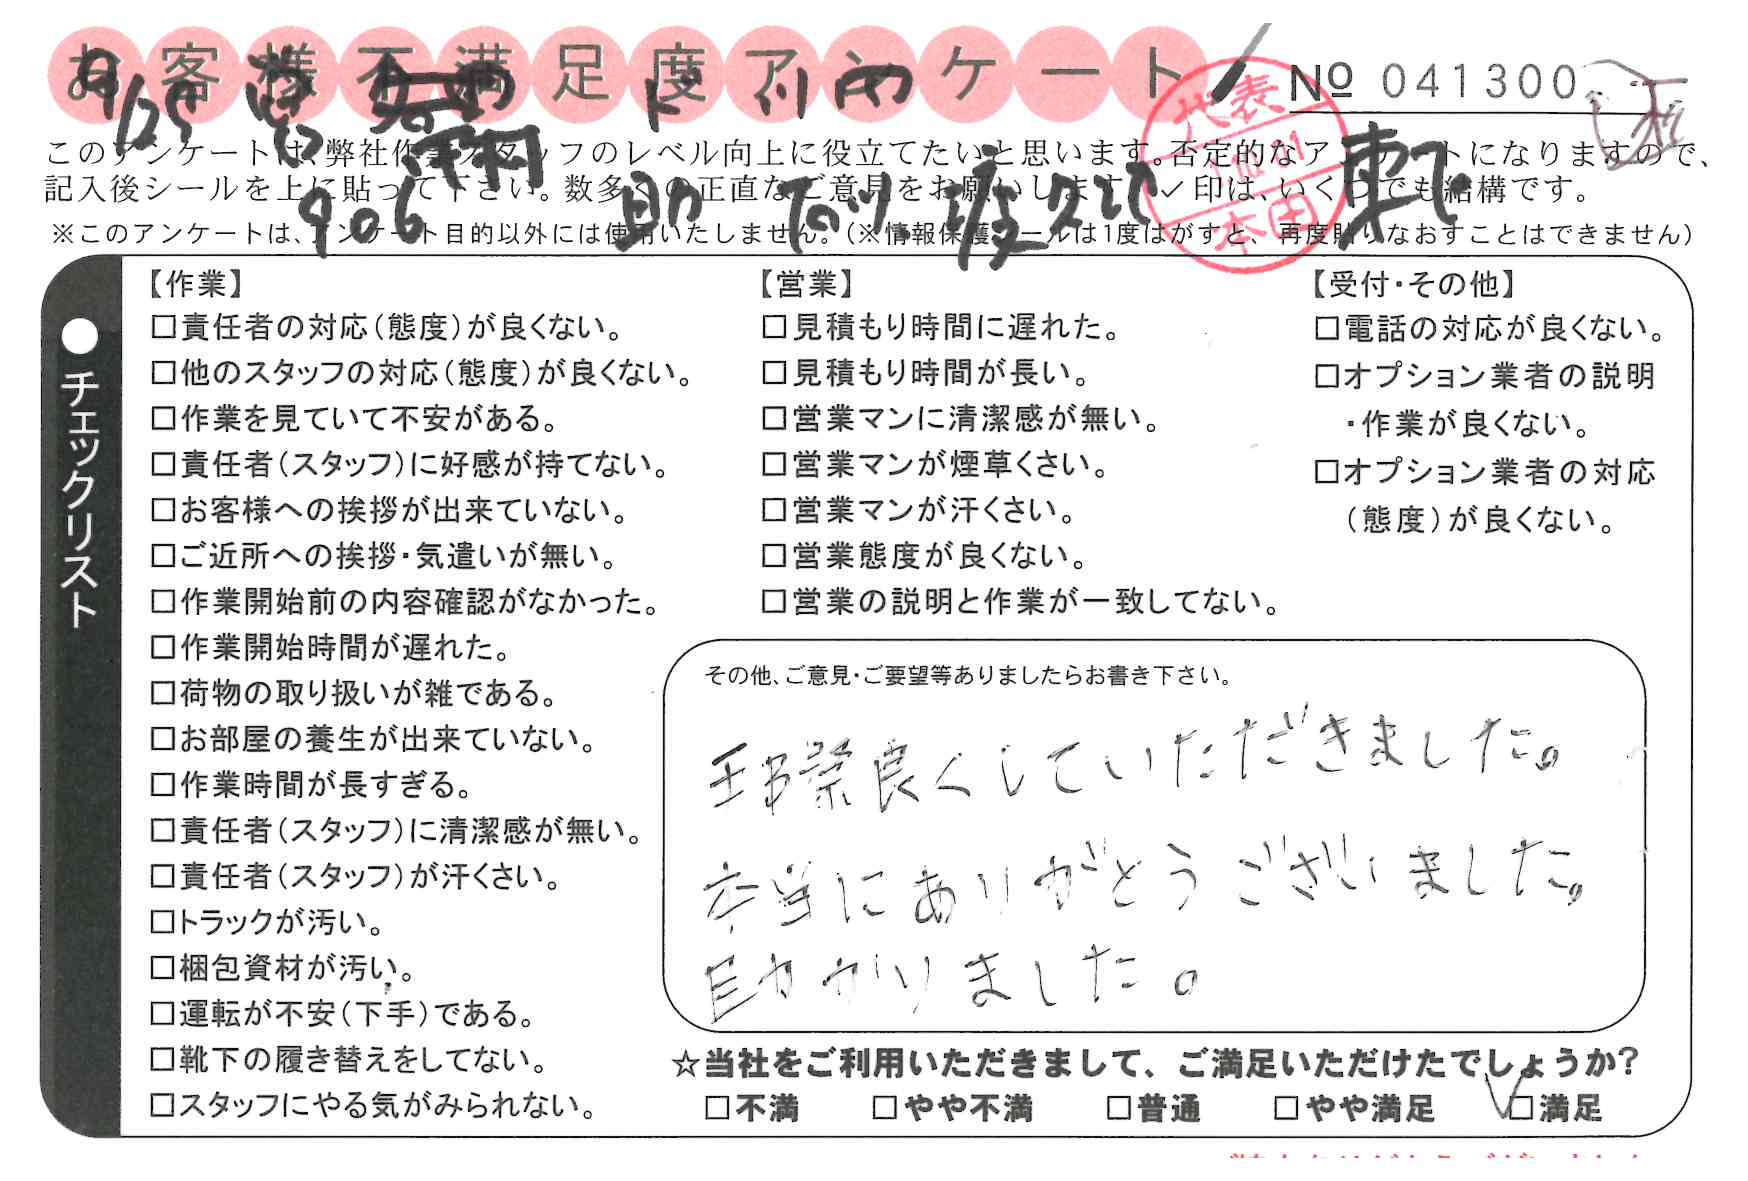 お客様不満足度アンケート
№ 041300
このアンケートは、弊社作業スタッフのレベル向上に役立てたいと思います。否定的なアンケートになりますので、
記入後シールを上に貼って下さい。数多くの正直なご意見をお願いします。✓印は、いくつでも結構です。
※このアンケートは、アンケート目的以外には使用いたしません。（※情報保護シールは1度はがすと、再度貼りなおすことはできません）
9/25
906
代表
本田
●チェックリスト
【作業】
□責任者の対応（態度）が良くない。
□他のスタッフの対応（態度）が良くない。
□作業を見ていて不安がある。
□責任者（スタッフ）に好感が持てない。
□お客様への挨拶が出来ていない。
□ご近所への挨拶・気遣いが無い。
□作業開始前の内容確認がなかった。
□作業開始時間が遅れた。
□荷物の取り扱いが雑である。
□お部屋の養生が出来ていない。
□作業時間が長すぎる。
□責任者（スタッフ）に清潔感が無い。
□責任者（スタッフ）が汗くさい。
□トラックが汚い。
□梱包資材が汚い。
□運転が不安（下手）である。
□靴下の履き替えをしてない。
□スタッフにやる気がみられない。
【営業】
□見積もり時間に遅れた。
□見積もり時間が長い。
□営業マンに清潔感が無い。
□営業マンが煙草くさい。
□営業マンが汗くさい。
□営業態度が良くない。
□営業の説明と作業が一致してない。
【受付・その他】
□電話の対応が良くない。
□オプション業者の説明
・作業が良くない。
□オプション業者の対応
（態度）が良くない。
その他、ご意見・ご要望等ありましたらお書き下さい。
良くしていただきました。
本当にありがとうございました。
助かりました。
☆当社をご利用いただきまして、ご満足いただけたでしょうか？
□不満 □やや不満 □普通 □やや満足 ☑満足